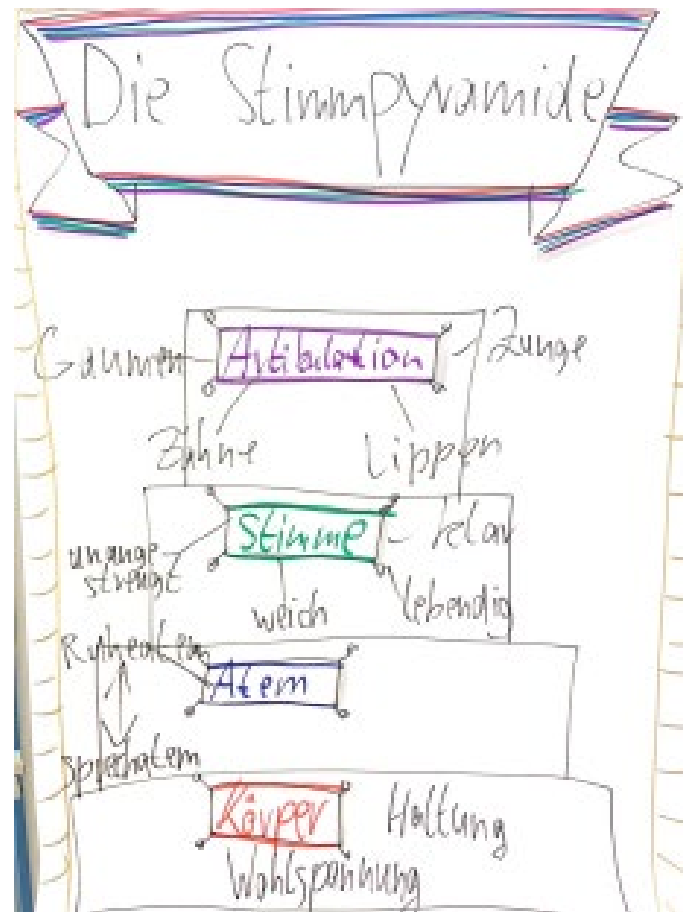 Die Stimmpyramide
Gaumen Artikulation Zunge
Zähne Lippen
Stimme klar
unange
strengt
weich lebendig
Ruheatem
Atem
Sprechatem
Körper Haltung
Wohlspannung